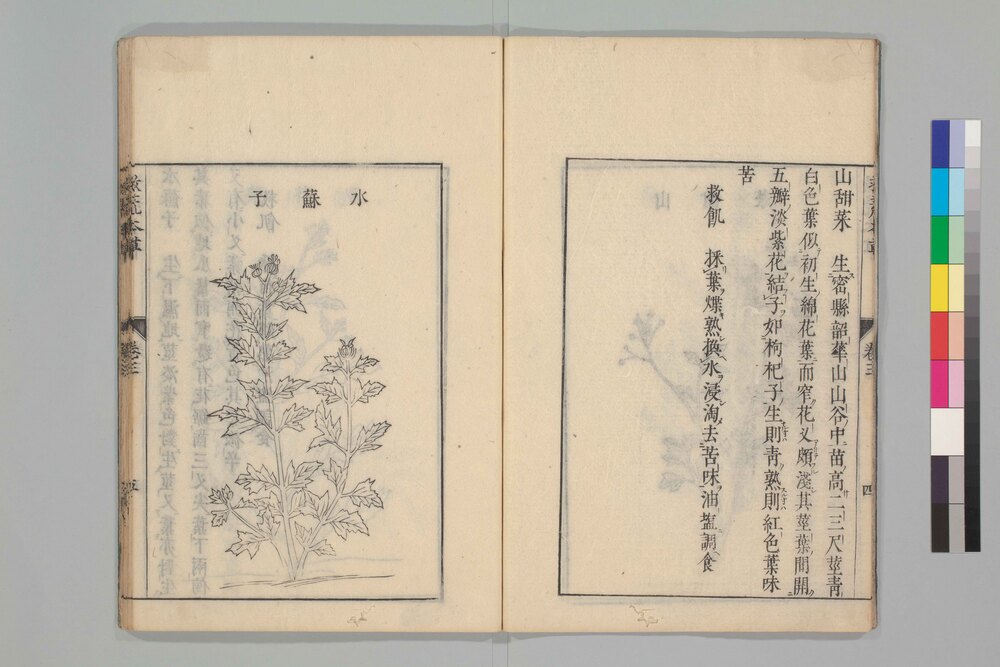 山甜菜 生密縣韶華山山谷中苗高二三尺莖青
白色葉似初生綿花葉而窄花叉頗淺其莖葉間開
五瓣淡紫花結子如枸杞子生則青熟則紅色葉味
苦
救飢 採葉煠熟換水浸淘去苦味油塩調食
卷三
四
水蘇子
救荒本草
卷三
五